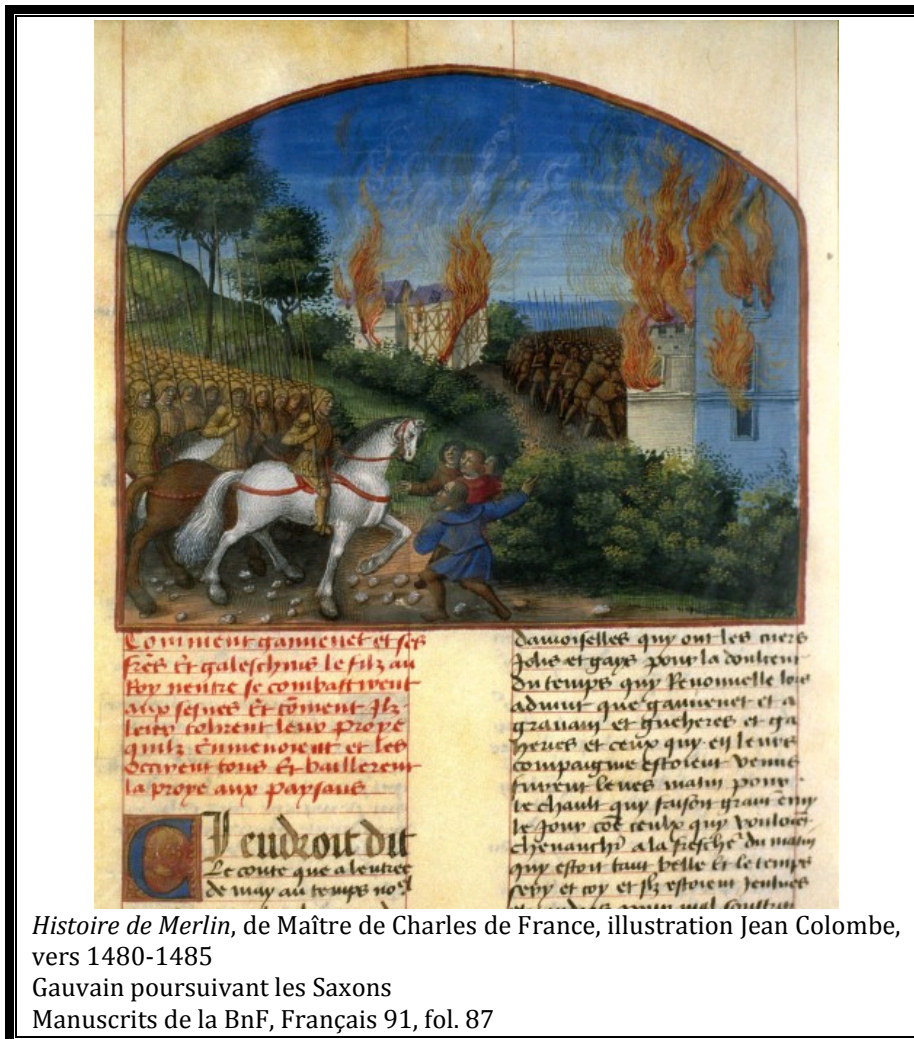 Comment gauuenet et ses
freres Et galeschins le filz au
Roy neutre se combattirent
aux sesnes Et coment Ilz
leur tolirent leur proye
quilz emmenoient et les
occirent tous Et baillerent
la proye aux paysans
C
I endroit dit
Le conte que a lentree
de may au temps no
damoiselles quy ont les cuers
Jolis et gays pour la doulceur
du temps quy Renouuelle lors
aduint que gauuenet et a
grauain et gueheres et ga
heries et ceux quy en leur
compaignie estoient venus
furent leues matin pour
le chault quy faisoit grant
le Jour quy
a la fresche du matin
quy estoit tant belle Et le temps
sery et coy et Ilz estoient Jeulnes
Histoire de Merlin, de Maître de Charles de France, illustration Jean Colombe,
vers 1480-1485
Gauvain poursuivant les Saxons
Manuscrits de la BnF, Français 91, fol. 87